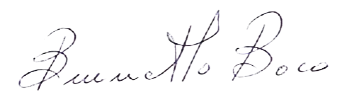 Brunetto Boco